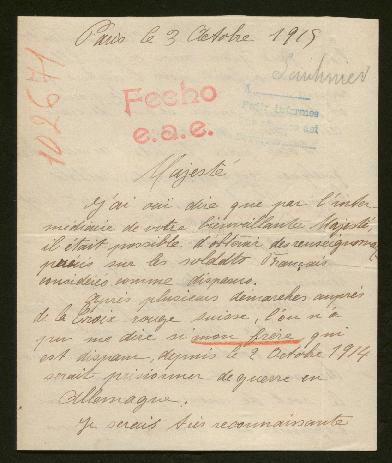 Paris le 3 Octobre 1915
102671
Fecho
e.a.e.
Majesté
J'ai oui dire que par l'inter
médiaire de votre bienveillante Majesté,
il était possible d'obtenir des renseignements
précis sur les soldats Français
considérés comme disparus.
Après plusieurs démarches auprès
de la Croix rouge suisse, l'on n'a
pu me dire si mon frère qui
est disparu, depuis le 2 Octobre 1914
serait prisonnier de guerre en
Allemagne.
Je serais très reconnaissante